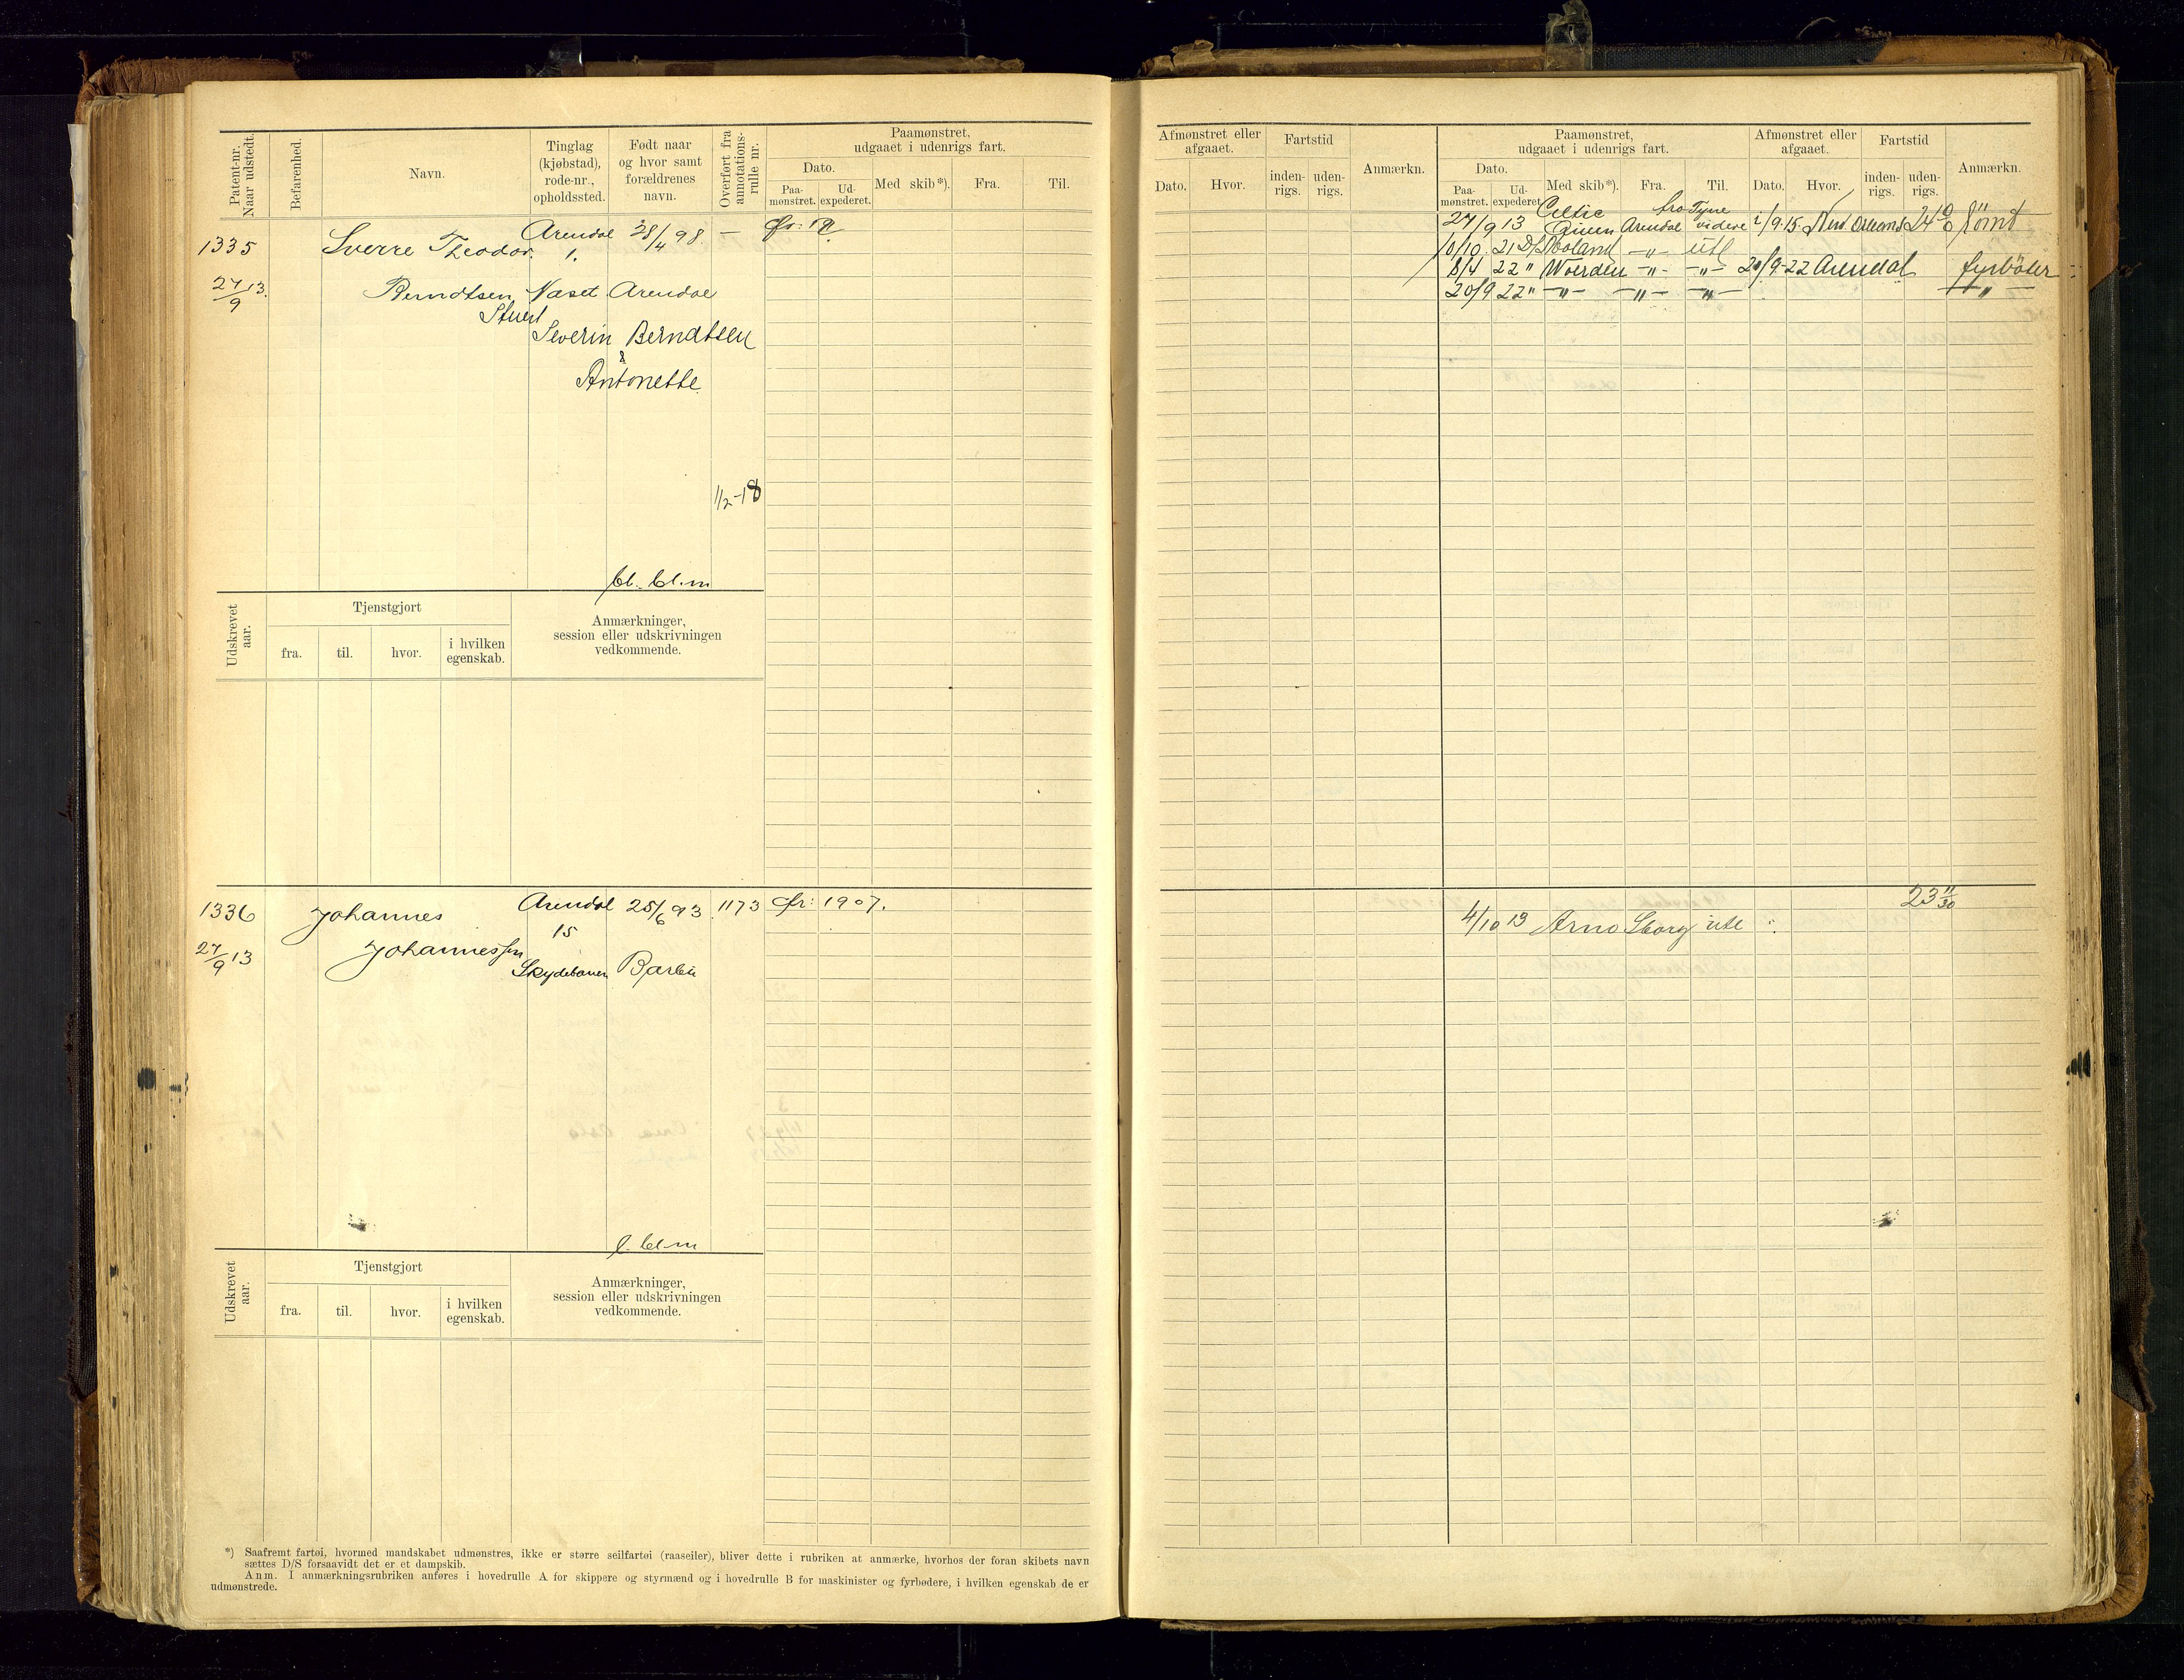 Patent-nr. Naar udstedt.
Befarenhed.
Navn.
Tinglag (kjøbstad), rode-nr., opholdssted.
Født naar og hvor samt forældrenes navn.
Overført fra annotations-rulle nr.
Paamønstret, udgaaet i udenrigs fart.
Dato.
Paa-mønstret.
Ud-expederet.
Med skib*).
Fra.
Til.
1335
Sverre Theodor
Arendal 28/4 98. —
1.
27/9 13.
Berndtsen Næset Arendal
Stuert
Severin Berndtsen
&
Antonette
1/2-18
bl. bl. m
Udskrevet aar.
Tjenstgjort
fra. til. hvor. i hvilken egenskab.
Anmærkninger, session eller udskrivningen vedkommende.
1336 Johannes Arendal 25/6 93 1173 Fr: 1907.
15
27/9 13 Johannessen
Skydebanen Barbu
l. bl. m
Udskrevet aar.
Tjenstgjort
fra. til. hvor. i hvilken egenskab.
Anmærkninger, session eller udskrivningen vedkommende.
*) Saafremt fartøi, hvormed mandskabet udmønstres, ikke er større seilfartøi (raaseiler), bliver dette i rubriken at anmærke, hvorhos der foran skibets navn
sættes D/S forsaavidt det er et dampskib.
Anm. I anmærkningsrubriken anføres i hovedrulle A for skippere og styrmænd og i hovedrulle B for maskinister og fyrbødere, i hvilken egenskab de er
udmønstrede.
Afmønstret eller afgaaet.
Dato. Hvor.
Fartstid
inden-rigs. uden-rigs.
Anmærkn.
Paamønstret, udgaaet i udenrigs fart.
Dato.
Paa-mønstret. Ud-expederet
Med skib*). Fra. Til.
Afmønstret eller afgaaet.
Dato. Hvor.
Fartstid
inden-rigs. uden-rigs.
Anmærkn.
Celtic fra Tyne
27/9 13 Queen Arendal videre i/9-15. New Orleans 24 römt
10/10 21 D/S Roland —"— utl
8/4 22 " Woerden —"— —"— 20/9-22 Arendal fyrböter
20/9 22 " —"— —"— —"— —"—
23 11/30
4/10 13 Arno Skorg ute